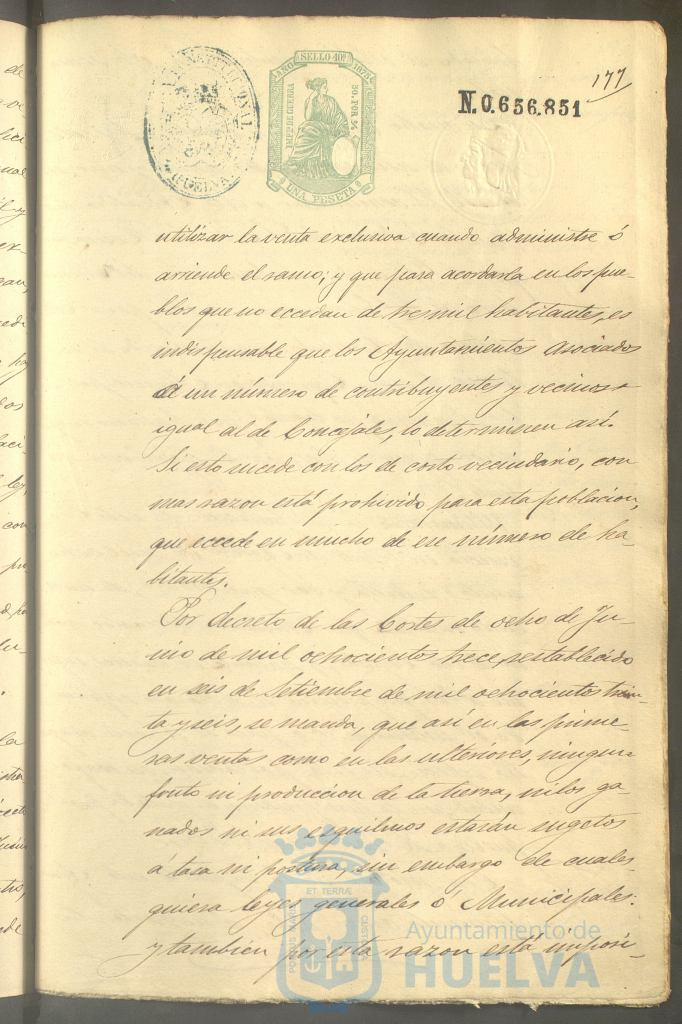 177
N.0.656.851
AÑO SELLO 10º 1878
IMPtO DE GUERRA
50. POR %
UNA PESETA
CONSTITUCIONAL
HUELVA
utilizar la venta exclusiva cuando administre ó
arriende el ramo; y que para acordarla en los pue-
blos que no eccedan de tres mil habitantes, es
indispensable que los Ayuntamientos asociados
á un número de contribuyentes y vecinos
igual al de Concejales, lo determinen así.
Si esto sucede con los de corto vecindario, con
mas razon está prohivido para esta poblacion,
que eccede en mucho de ese número de ha-
bitantes.
Por decreto de las Cortes de ocho de Ju-
nio de mil ochocientos trece, restablecido
en seis de Setiembre de mil ochocientos trein-
ta y seis, se manda, que así en las prime-
ras ventas como en las ulteriores, ningun
fruto ni produccion de la tierra, ni los ga-
nados ni sus esquilmos estarán sugetos
á tasa ni postura, sin embargo de cuales-
quiera leyes generales ó Municipales:
y tambien por esta razon está imposi-
PORTUS MARIS ET TERRÆ CUSTODIA
Ayuntamiento de
HUELVA